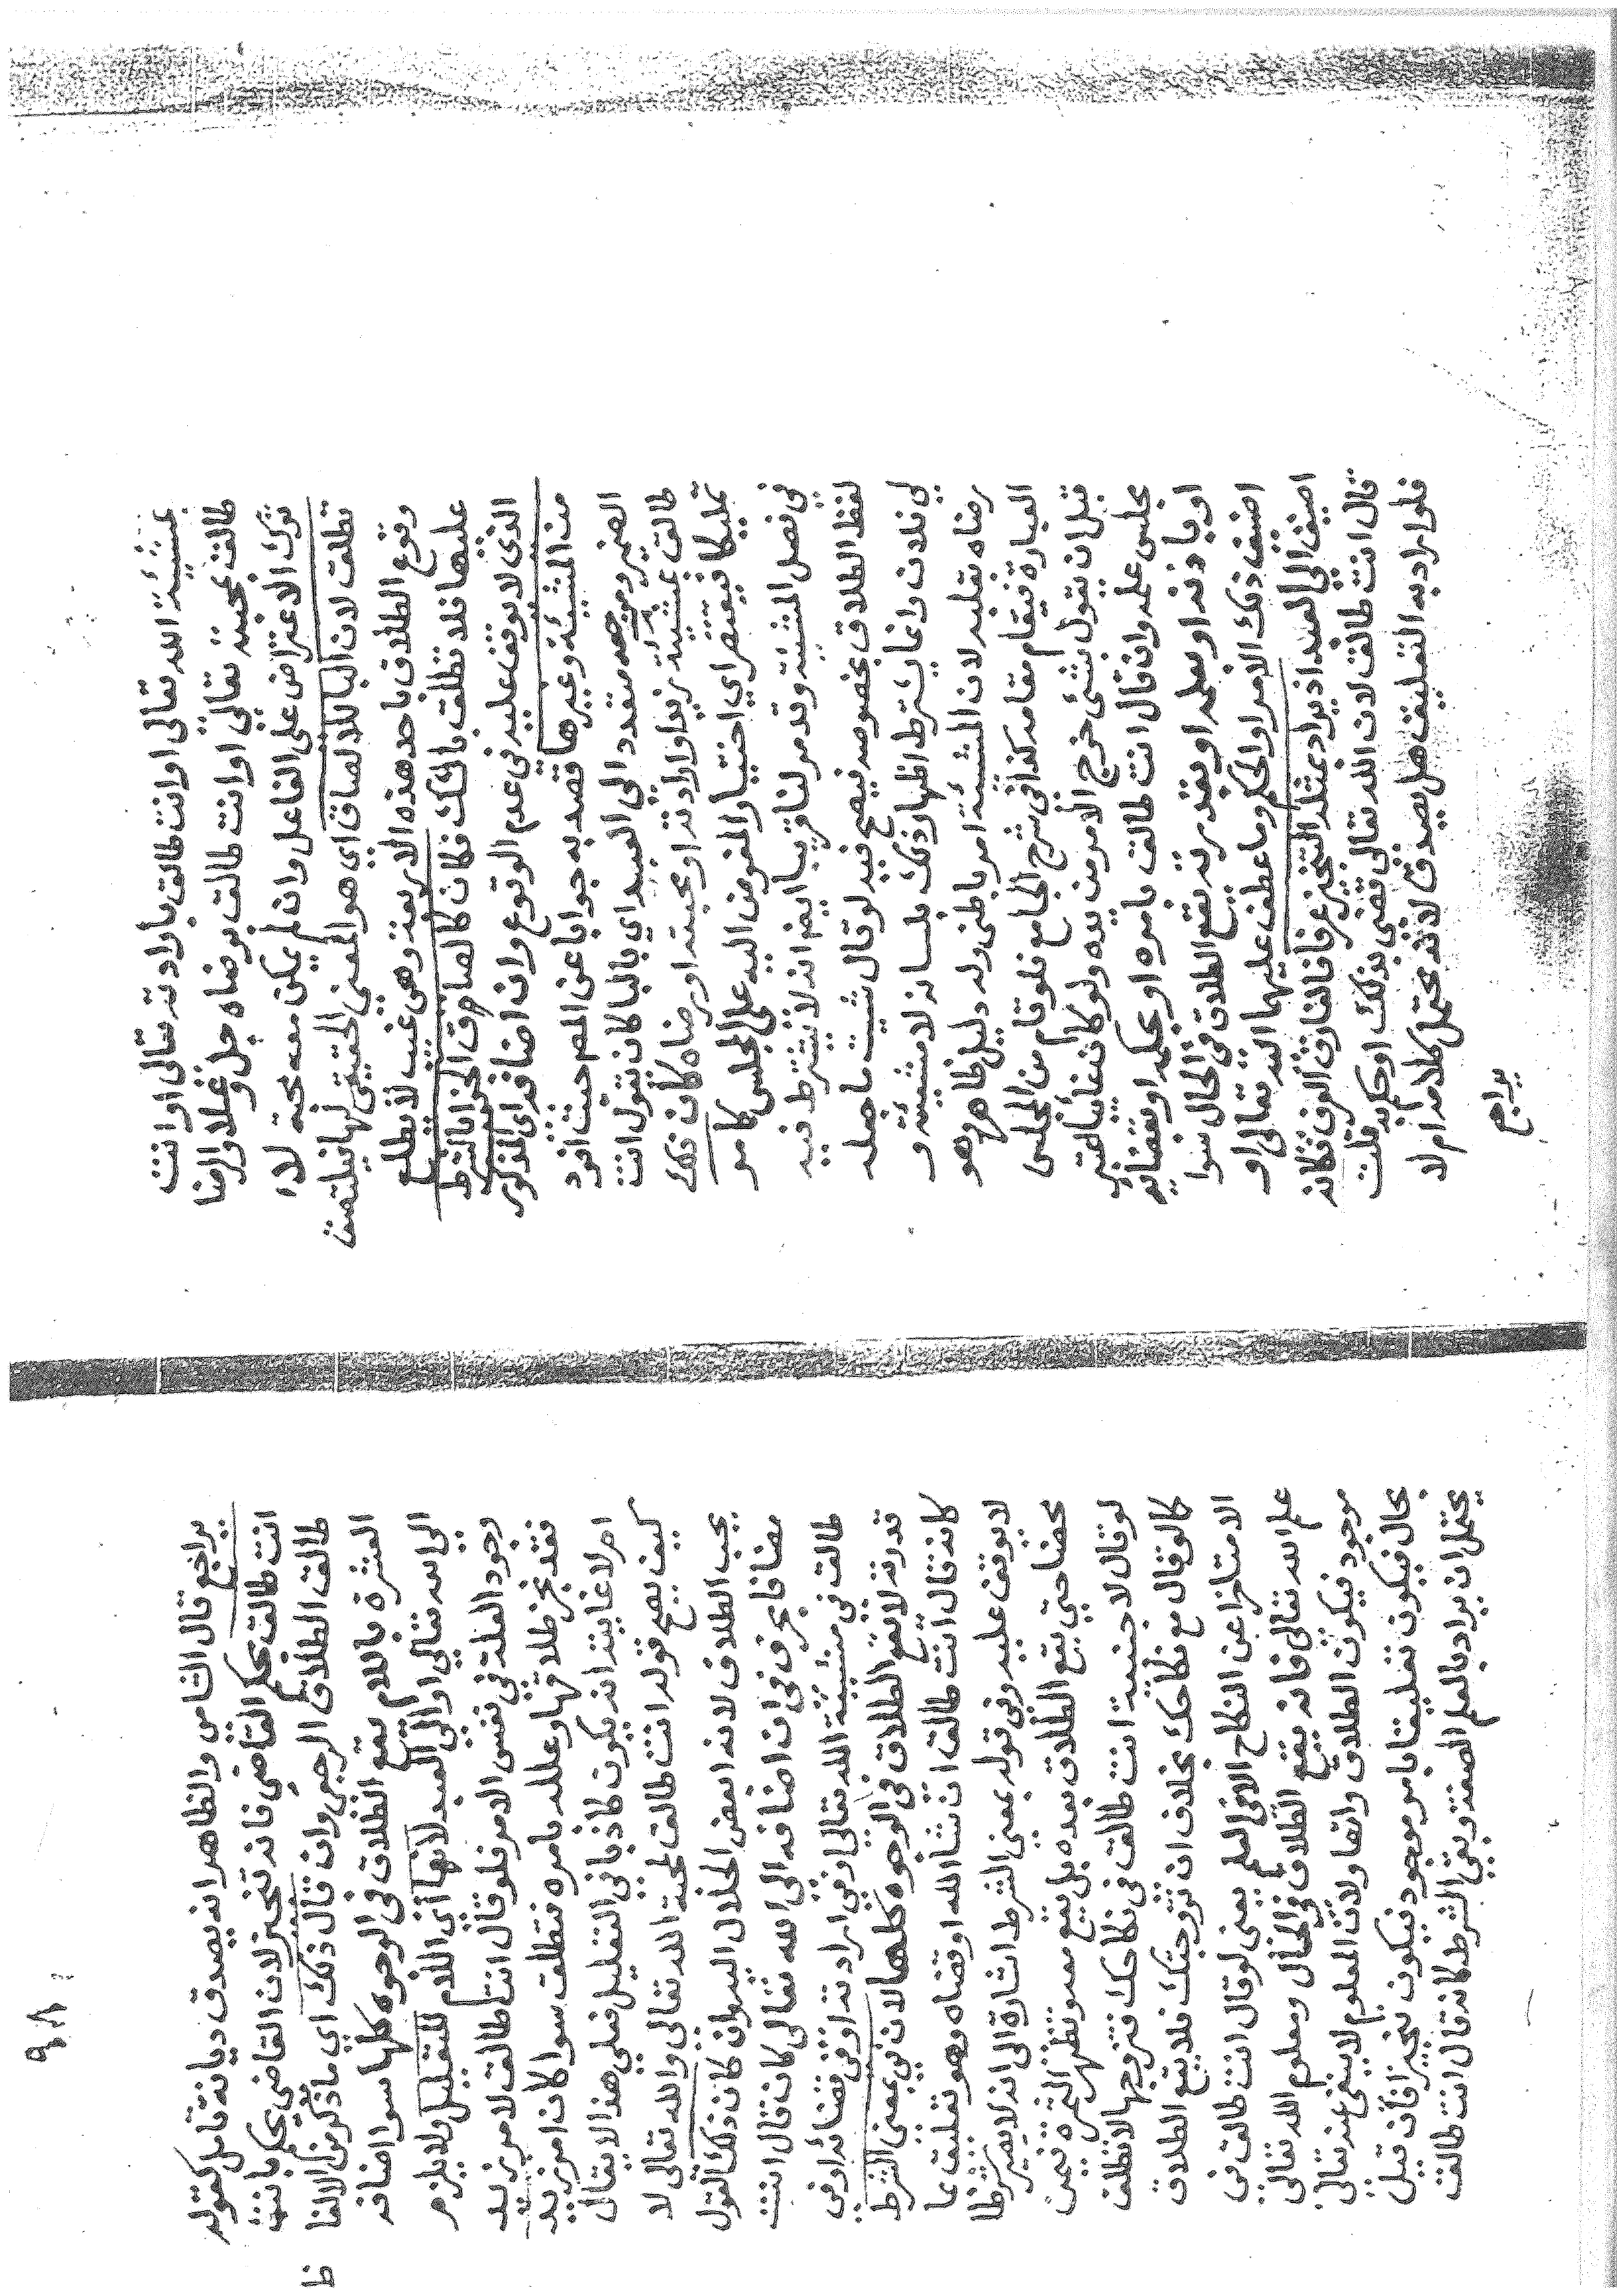 بمشيئة الله تعالى او انت طالق بارادته تعالى او انت
طالق بمحبته تعالى او انت طالق برضاه جل وعلا والرضا
ترك الاعتراض على الفاعل وان لم يكن معه محبة لا
تطلق لان البا للالصاق اي هو المعنى الحقيقي لها فيلتصق
وقوع الطلاق باحد هذه الاربعة وهي غيب لا يطلع
عليها فلا تطلق بالشك فكان كالصاق الجزا بالشرط
الذي لا يوقف عليه في عدم الوقوع وان اضافه اي المذكور
من المشيئة وغيرها قصد به جوابا عن المص حيث افرد
الضمير ومرجعه متعدد الى العبد اي بالبا كان تقول انت
طالق بمشيئة زيد او ارادته او محبته او رضاه كان ذلك
تمليكا فيقتصر اي اختيار المفوض اليه على المجلس كما مر
في فصل المشيئة وقد مر لنا قريبا ايضا انه لا يشترط فيه
لفظ الطلاق بخصوصه فيصح فيه لو قال شيت ما جعله
لي فلان وانما يشترط اظهار ذلك بلسانه لا مشيئته و
رضاه بقلبه لان المشيئة امر باطني وله دليل ظاهر وهو
العبارة فيقام مقامه كذا في شرح الجامع فلو قام من المجلس
قبل ان يقول بشئ خرج الامر من يده ولو كان غايبا اعتبر
مجلس علمه وان قال انت طالق بامره او بحكمه او بقضائه
او باذنه او بعلمه او بقدرته يقع الطلاق في الحال سوا
اضيف ذلك الامر او الحكم وما عطف عليهما الله تعالى او
اضيف الى العبد اذ يراد بمثله التنجيز عرفا فالفارق العرف فكانه
قال انت طالق لان الله تعالى قضى بذلك او حكم به قلت
فلو اراد به التعليق هل يصدق لانه محتمل كلامه ام لا
يراجع
٩٨
يراجع قال الشامي والظاهر انه يصدق ديانة تامل كقوله
انت طالق بحكم القاضي فانه تنجيز لان القاضي يحكم بانت
طالق الطلاق الرجعي وان قال ذلك اي ما ذكر من الالفا
ظ
العشرة باللام يقع الطلاق في الوجوه كلها سوا اضافه
الى الله تعالى او الى العبد لانها اي اللام للتعليل ولا يلزم
وجود العلة في نفس الامر فلو قال انت طالق لامر زيد
فقد نجز طلاقها وعلله بامره فتطلق سوا كان امر زيد
ام لا غايته انه يكون كاذبا في التعليل فعلى هذا لا يقال
كيف يصح قوله انت طالق لمحبة الله تعالى والله تعالى لا
يحب الطلاق لانه ابغض الحلال اليه وان كان ذلك القول
مضافا بحرف في ان اضافه الى الله تعالى كان قال انت
طالق في مشيئة الله تعالى او في ارادته او في قضائه او في
قدرته لا يقع الطلاق في الوجوه كلها لان في بمعنى الشرط
كانه قال انت طالق ان شا الله او قضاه وهو تعليق بما
لا يوقف عليه وفي قوله بمعنى الشرط اشارة الى انه لا يصير شرطا
محضا حتى يقع الطلاق بعده بل يقع معه وتظهر الثمرة فيمن
لو قال لاجنبية انت طالق في نكاحك فتزوجها لا تطلق
كما لو قال مع نكاحك بخلاف ان تزوجتك فلا يقع الطلاق
الا متاخرا عن النكاح الا في العلم يعني لو قال انت طالق في
علم الله تعالى فانه يقع الطلاق في الحال ومعلوم الله تعالى
موجود فيكون الطلاق واقعا ولان المعلوم لا ينفى عنه تعالى
بحال فيكون تعليقا بامر موجود فيكون تنجيزا فان قيل
يحتمل ان يراد بالعلم الصفة ويبقى الشرط كانه قال انت طالق